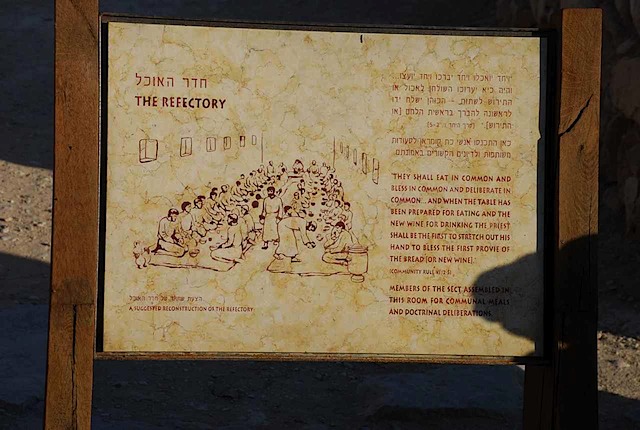 חדר האוכל
THE REFECTORY
"יחד יואכלו ויחד יברכו ויחד יועצו...
והיה כיא יערוכו השולחן לאכול או
התירוש לשתות, הכוהן ישלח ידו
לראשונה להברך בראשית הלחם [או
התירוש]"
כאן התכנסו אנשי כת קומראן לסעודות
משותפות ולדיונים הקשורים באמונתם.
"THEY SHALL EAT IN COMMON AND
BLESS IN COMMON AND DELIBERATE IN
COMMON... AND WHEN THE TABLE HAS
BEEN PREPARED FOR EATING AND THE
NEW WINE FOR DRINKING THE PRIEST
SHALL BE THE FIRST TO STRETCH OUT HIS
HAND TO BLESS THE FIRST PROVIE OF
THE BREAD [OR NEW WINE]."
(COMMUNITY RULE
MEMBERS OF THE SECT ASSEMBLED IN
THIS ROOM FOR COMMUNAL MEALS
AND DOCTRINAL DELIBERATIONS.
הצעת שחזור של חדר האוכל
A SUGGESTED RECONSTRUCTION OF THE REFECTORY